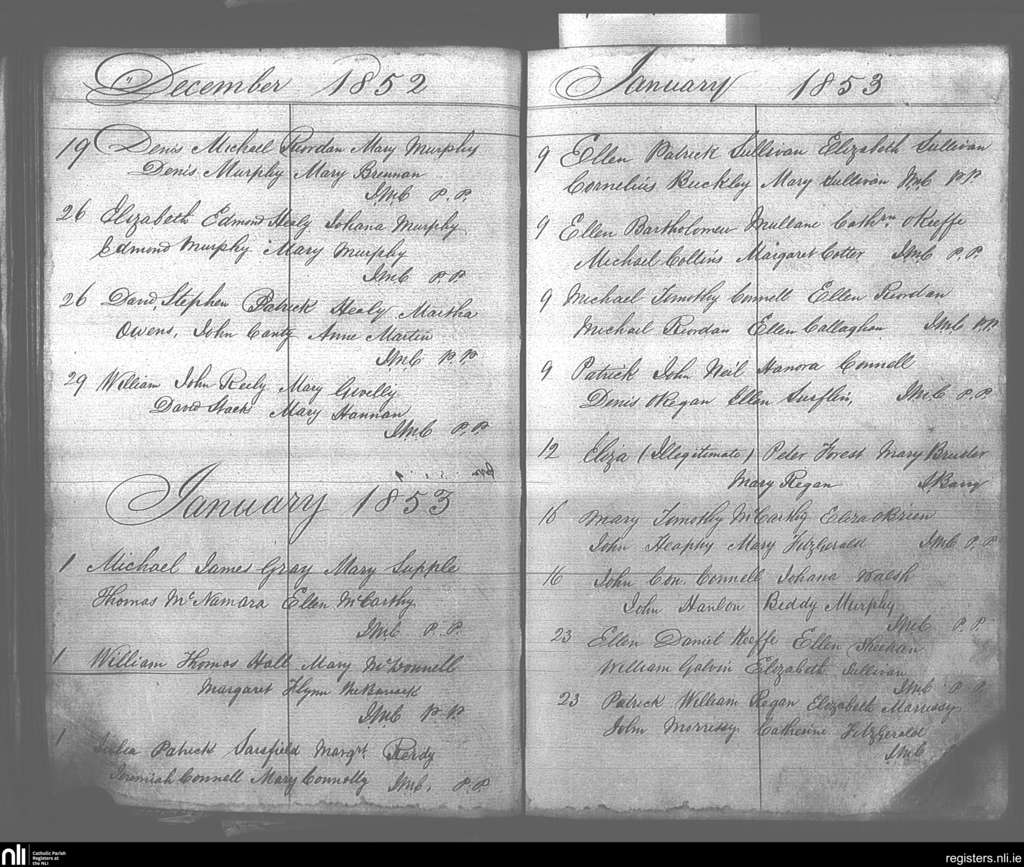 December 1852
19 Denis Michael Riordan Mary Murphy
Denis Murphy Mary Brennan
JMC P.P.
26 Elizabeth Edmond Healy Johana Murphy
Edmond Murphy Mary Murphy
JMC P.P.
26 David, Stephen Patrick Healy Martha
Owens, John Canty Anne Martin
JMC P.P.
29 William John Reily Mary
David Stack Mary Hannan
JMC P.P.
January 1853
1 Michael James Gray Mary Supple
Thomas McNamara Ellen McCarthy
JMC P.P.
1 William Thomas Hall Mary McDonnell
Margaret Flynn
JMC P.P.
1 Julia Patrick Sarsfield Margrt. Reardy
Jeremiah Connell Mary Connolly JMC. P.P.
January 1853
9 Ellen Patrick Sullivan Elizabeth Sullivan
Cornelius Buckley Mary Sullivan JMC P.P.
9 Ellen Bartholomew Mullane Cathrn. OKeeffe
Michael Collins Margaret Cotter JMC P.P.
9 Michael Timothy Connell Ellen Riordan
Michael Riordan Ellen Callaghan JMC P.P.
9 Patrick John Neil Hanora Connell
Denis ORegan Ellen JMC P.P.
12 Eliza (Illegitimate) Peter Forest Mary
Mary Regan J Barry
16 Mary Timothy McCarthy Eliza OBrien
John Heaphy Mary FitzGerald JMC P.P.
16 John Con. Connell Johana Walsh
John Hanlon Biddy Murphy
JMC P.P.
23 Ellen Daniel Keeffe Ellen Sheehan
William Galvin Elizabeth Sullivan
JMC P.P.
23 Patrick William Regan Elizabeth Marrissy
John Morrissy Catherine FitzGerald
JMC
nli Catholic Parish Registers at the NLI
registers.nli.ie